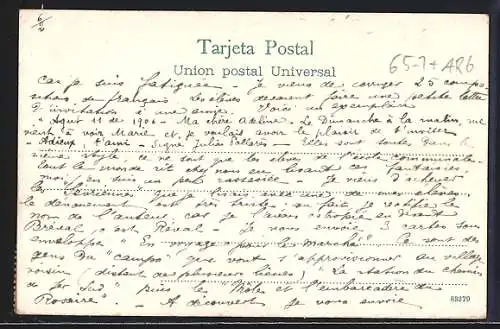 6/2
Tarjeta Postal
65-7+ AR6
Union postal Universal
car je suis fatiguée. Je viens de corriger 25 compo-
sitions de français. Les élèves devaient faire une petite lettre
d'invitation à une amie. Voici un exemplaire
"Agut 11 de 1904 - Ma chère Adeline. Le Dimanche à la matin,
vient à voir Marie et je voulais avoir le plaisir de t'inviter
Adieux, t'ami - signé Julia". Elles sont toutes dans le
même style. Ce ne sont que les élèves de l'école communale.
tout le monde rit chez nous en lisant ces fantaisies
moi, j'en suis un peu rassasiée. Je viens d'achever
que je lisais avec une de mes élèves.
le dénouement est très triste. au fait je rectifie le
nom de l'auteur, car je l'avais estropié en disant
Bréval, c'est Réval. - Je vous envoie 3 cartes sous
enveloppe "En voyage pour le marché". Ce sont des
gens du "campo" que vont s'approvisionner au village
voisin (distant de plusieurs lieues) "La station du chemin
de fer Sud" puis le "Môle et l'embarcadère du
Rosaire". - A découvert je vous envoie
83270